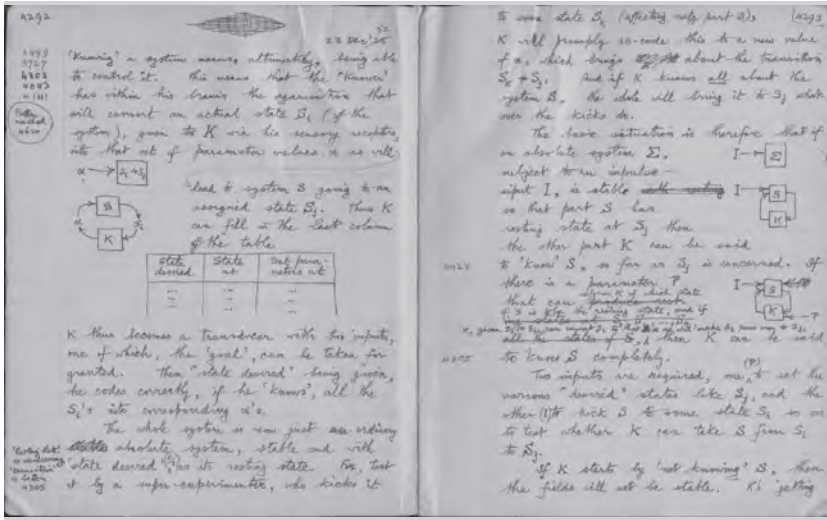 4292
23 Dec '52
'Knowing' a system means, ultimately, being able
to control it. This means that the "Knower"
has within his brain the organisation that
will convert an actual state Si (of the
system), given to K via his sensory receptors,
into that set of parameter values α as will
α → Si → Sj
lead to system S going to an
assigned state Sj. Thus K
can fill in the last column
of the table
S
K
State desired
State at
Set para-
meters at
...
...
...
K thus becomes a transducer with two inputs,
one of which, the 'goal', can be taken for
granted. Then "state desired" being given,
he codes correctly, if he 'knows', all the
Si's into corresponding α's.
The whole system is now just an ordinary
absolute system, stable and with
'state desired' as its resting state. For, test
it by a super-experimenter, who kicks it
4305
4293
to some state Sk (affecting only part S);
K will promptly re-code this to a new value
of α, which brings about the transition
Sk → Sj. And if K knows all about the
system S, the whole will bring it to Sj what
ever the kicks do.
The basic situation is therefore that if
an absolute system Σ,
subject to an impulse-
input I, is stable
so that part S has
resting state at Sj then
the other part K can be said
to 'know' S, so far as Sj is concerned. If
there is a parameter P
that can
inform K of which state
of S is to be the resting state, and if
then K can be said
to know S completely.
I → Σ
I → S
K
I → S
K ← P
Two inputs are required, one (P) to set the
various "desired" states like Sj, and the
other (I) to kick S to some state Si so as
to test whether K can take S from Si
to Sj.
If K starts by 'not knowing' S, then
the fields will not be stable. K's 'getting